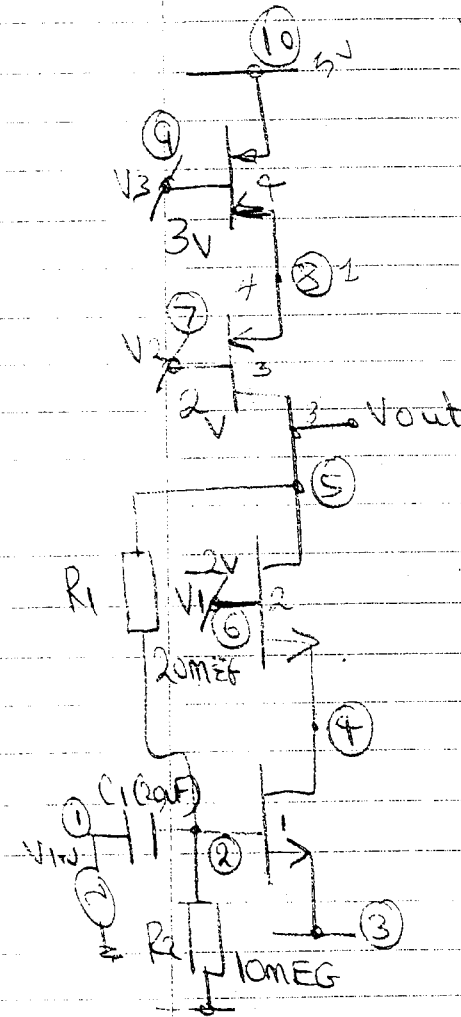 10
5V
9
V3
4
3V
8 1
+
7
V2
3
2V
3 Vout
5
R1
2V
V1
2
6
20MEG
4
C1(20UF)
1
1
Vin
2
3
R2
10MEG